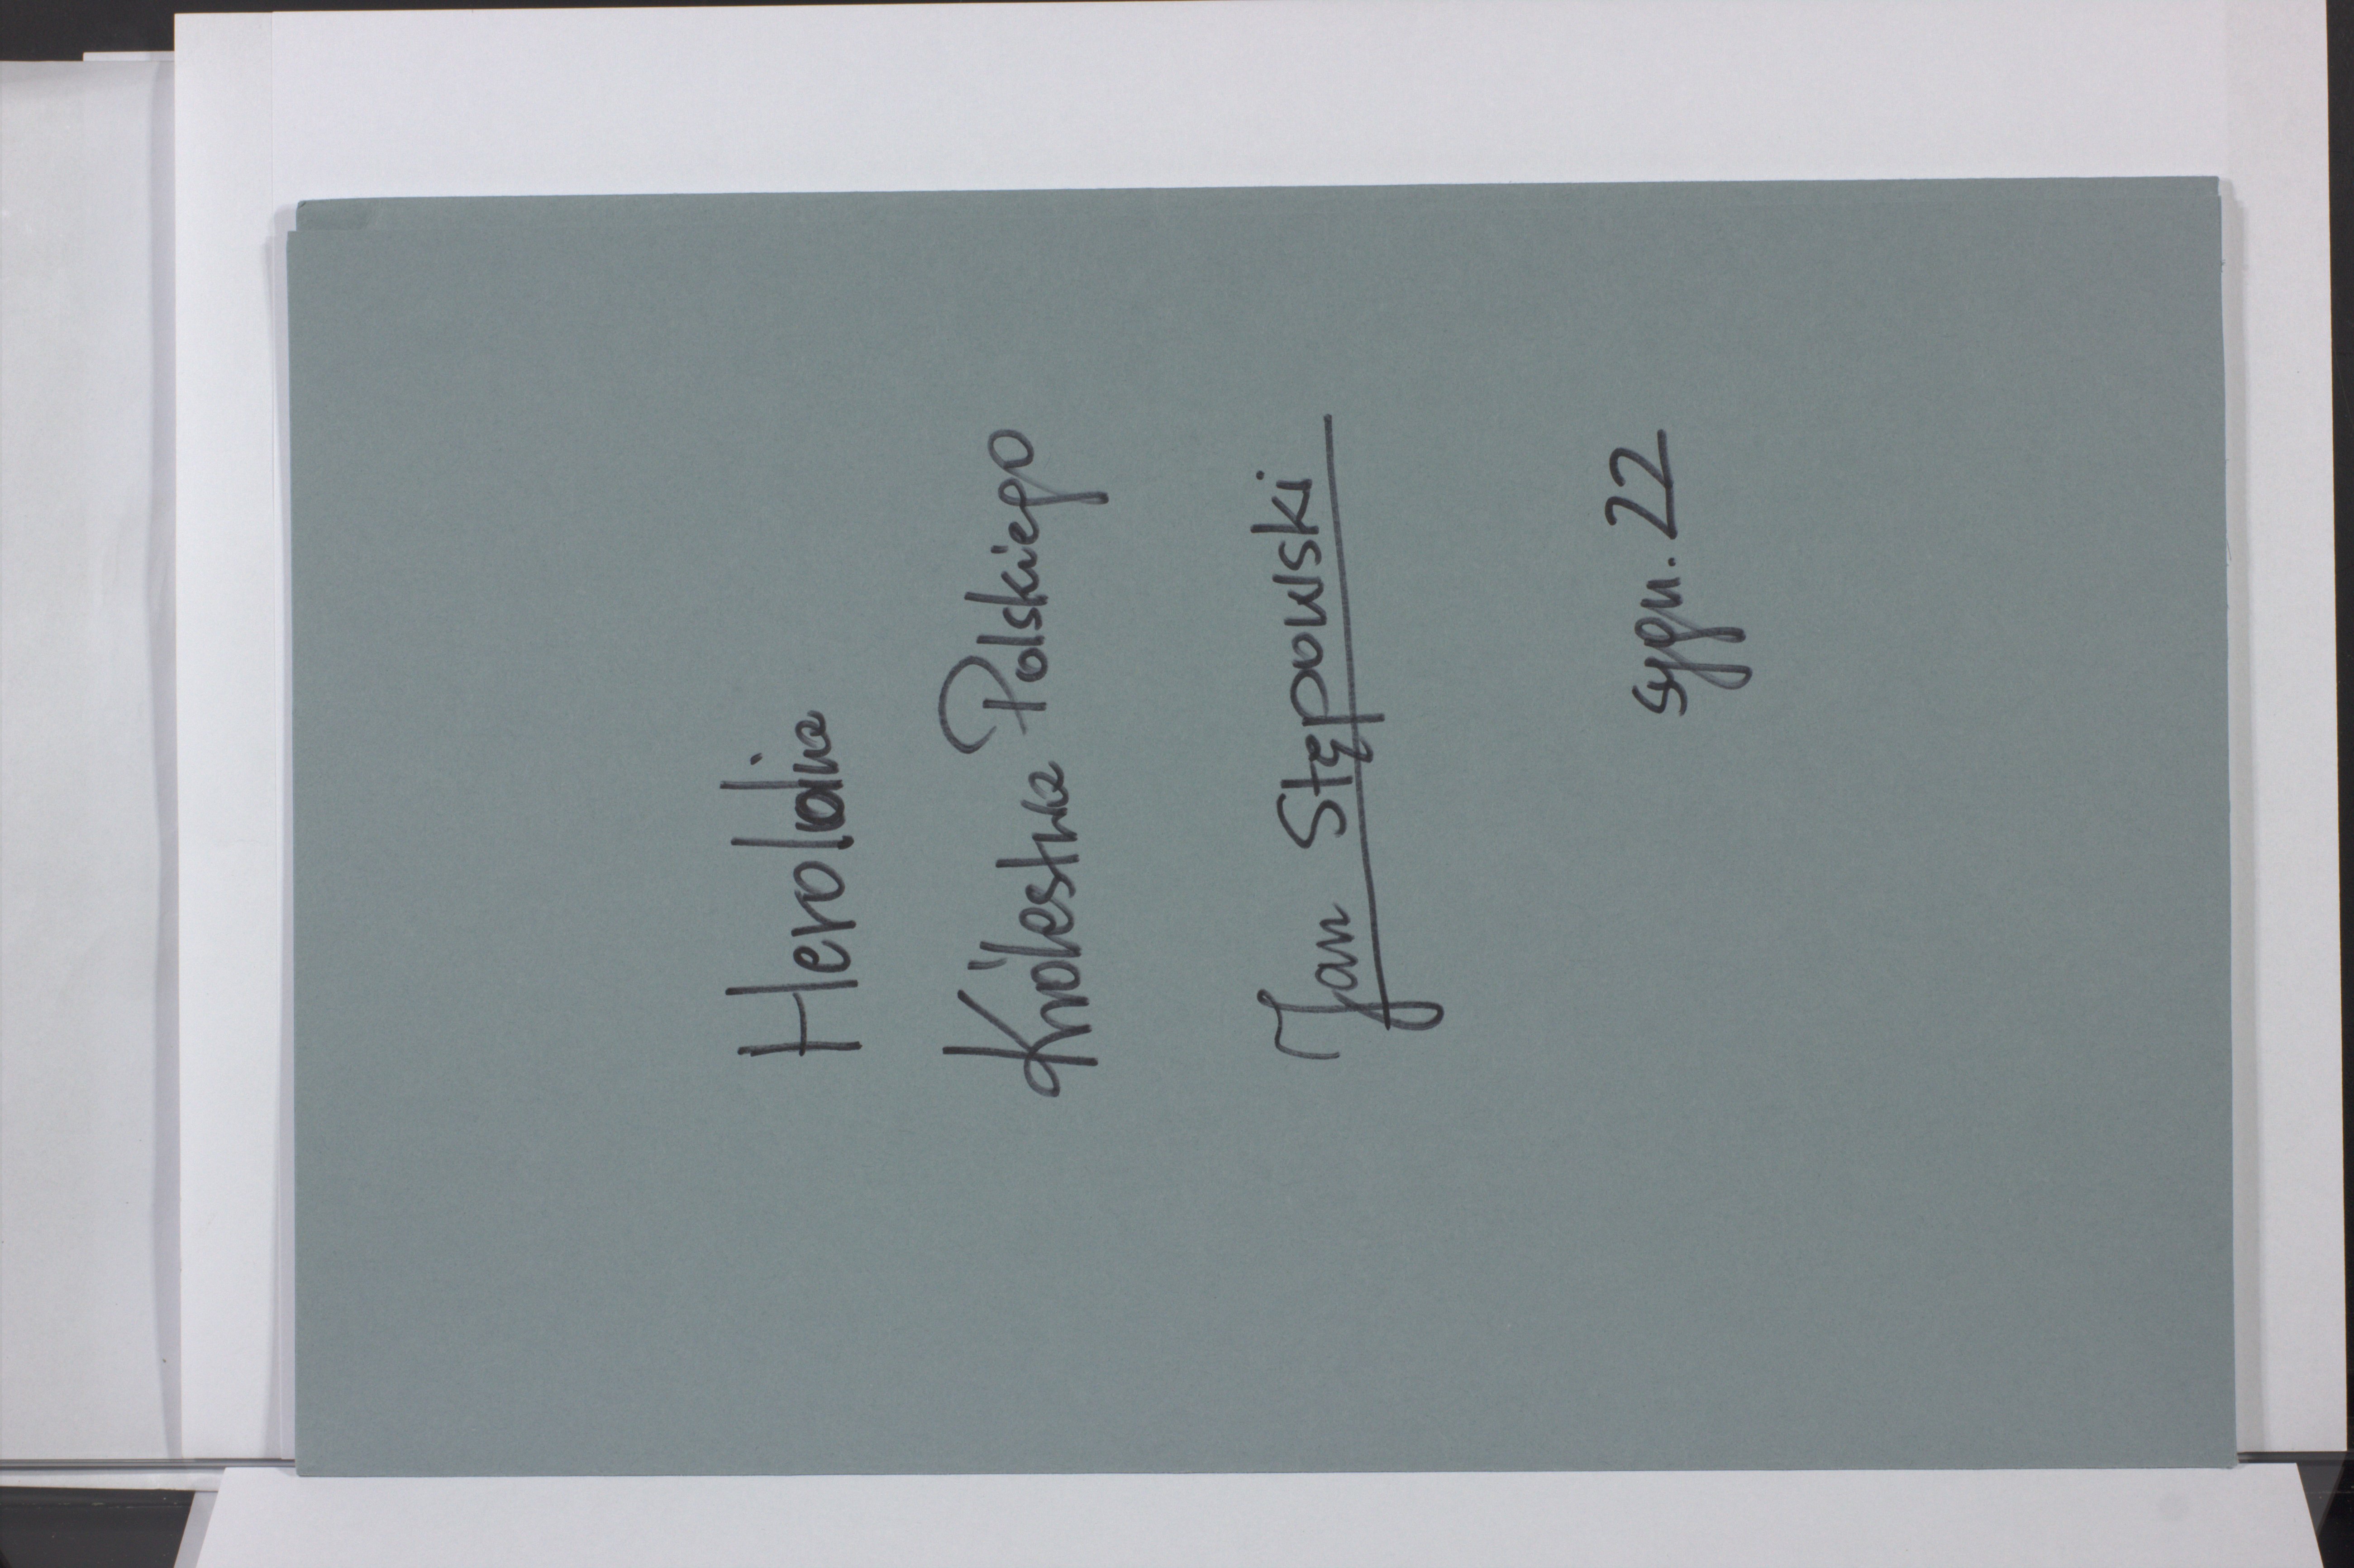 Heroldia
Królestwa Polskiego
Jan Stępowski
sygn. 22